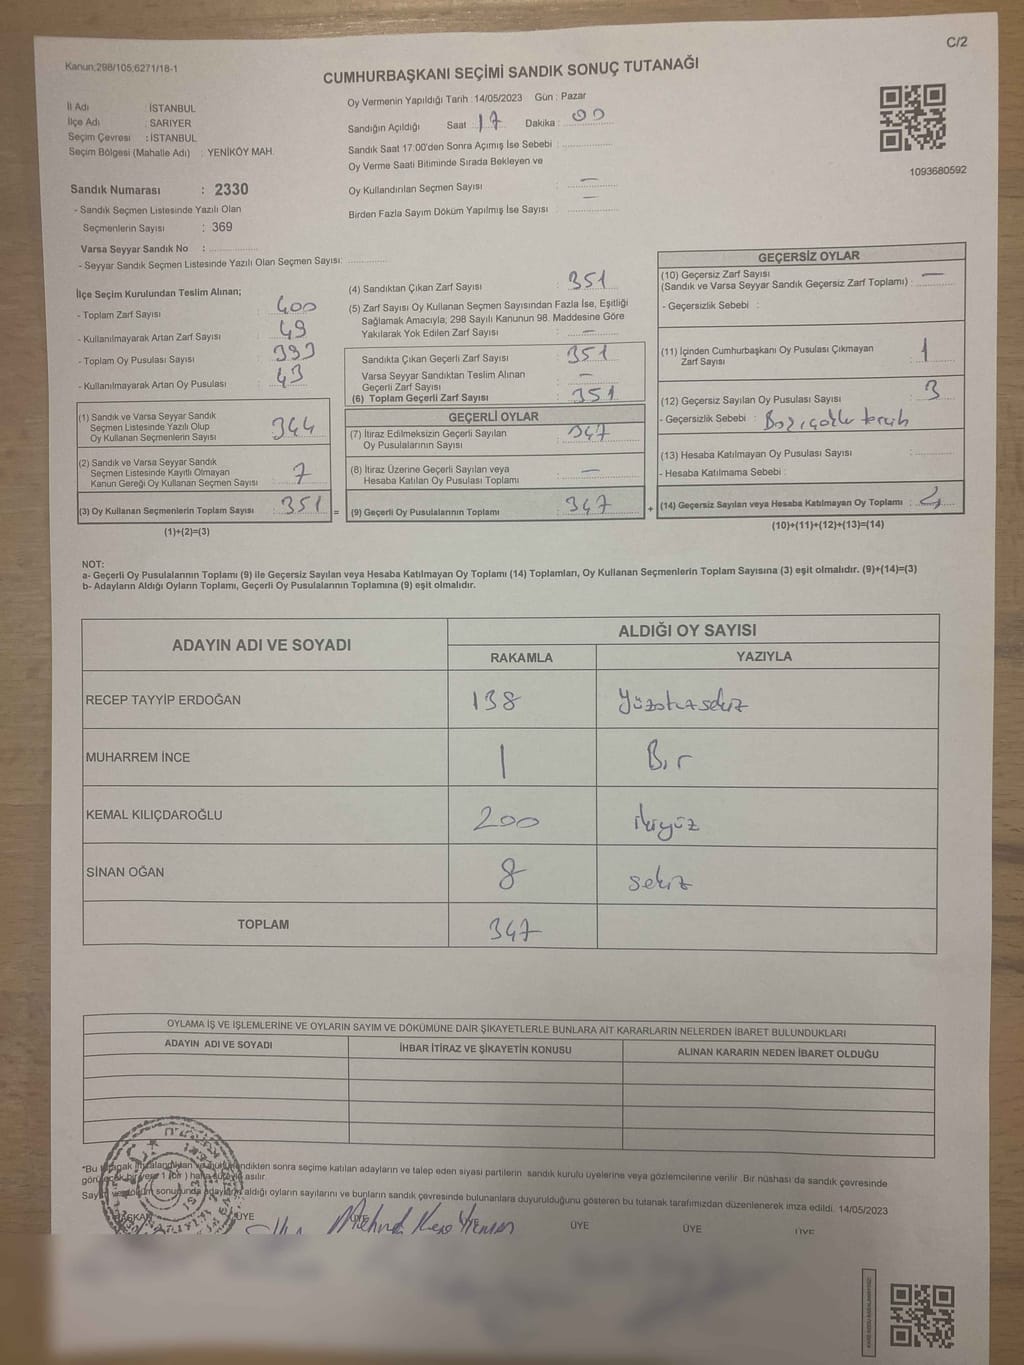 C/2
Kanun;298/105;6271/18-1
CUMHURBAŞKANI SEÇİMİ SANDIK SONUÇ TUTANAĞI
İl Adı : İSTANBUL
İlçe Adı : SARIYER
Seçim Çevresi : İSTANBUL
Seçim Bölgesi (Mahalle Adı) : YENİKÖY MAH.
Oy Vermenin Yapıldığı Tarih : 14/05/2023 Gün : Pazar
Sandığın Açıldığı Saat 17 Dakika : 00
Sandık Saat 17:00'den Sonra Açımış İse Sebebi :
Oy Verme Saati Bitiminde Sırada Bekleyen ve
Oy Kullandırılan Seçmen Sayısı : —
Birden Fazla Sayım Döküm Yapılmış İse Sayısı : —
1093680592
Sandık Numarası : 2330
- Sandık Seçmen Listesinde Yazılı Olan
Seçmenlerin Sayısı : 369
Varsa Seyyar Sandık No :
- Seyyar Sandık Seçmen Listesinde Yazılı Olan Seçmen Sayısı:
İlçe Seçim Kurulundan Teslim Alınan;
- Toplam Zarf Sayısı : 400
- Kullanılmayarak Artan Zarf Sayısı : 49
- Toplam Oy Pusulası Sayısı : 393
- Kullanılmayarak Artan Oy Pusulası : 43
(1) Sandık ve Varsa Seyyar Sandık
Seçmen Listesinde Yazılı Olup
Oy Kullanan Seçmenlerin Sayısı : 344
(2) Sandık ve Varsa Seyyar Sandık
Seçmen Listesinde Kayıtlı Olmayan
Kanun Gereği Oy Kullanan Seçmen Sayısı : 7
(3) Oy Kullanan Seçmenlerin Toplam Sayısı : 351 =
(1)+(2)=(3)
(4) Sandıktan Çıkan Zarf Sayısı : 351
(5) Zarf Sayısı Oy Kullanan Seçmen Sayısından Fazla İse, Eşitliği
Sağlamak Amacıyla; 298 Sayılı Kanunun 98. Maddesine Göre
Yakılarak Yok Edilen Zarf Sayısı : —
Sandıkta Çıkan Geçerli Zarf Sayısı : 351
Varsa Seyyar Sandıktan Teslim Alınan
Geçerli Zarf Sayısı : —
(6) Toplam Geçerli Zarf Sayısı : 351
GEÇERLİ OYLAR
(7) İtiraz Edilmeksizin Geçerli Sayılan
Oy Pusulalarının Sayısı : 347
(8) İtiraz Üzerine Geçerli Sayılan veya
Hesaba Katılan Oy Pusulası Toplamı : —
(9) Geçerli Oy Pusulalarının Toplamı : 347 +
GEÇERSİZ OYLAR
(10) Geçersiz Zarf Sayısı
(Sandık ve Varsa Seyyar Sandık Geçersiz Zarf Toplamı) : —
- Geçersizlik Sebebi :
(11) İçinden Cumhurbaşkanı Oy Pusulası Çıkmayan
Zarf Sayısı : 1
(12) Geçersiz Sayılan Oy Pusulası Sayısı : 3
- Geçersizlik Sebebi :
(13) Hesaba Katılmayan Oy Pusulası Sayısı :
- Hesaba Katılmama Sebebi :
(14) Geçersiz Sayılan veya Hesaba Katılmayan Oy Toplamı : 4
(10)+(11)+(12)+(13)=(14)
NOT:
a- Geçerli Oy Pusulalarının Toplamı (9) ile Geçersiz Sayılan veya Hesaba Katılmayan Oy Toplamı (14) Toplamları, Oy Kullanan Seçmenlerin Toplam Sayısına (3) eşit olmalıdır. (9)+(14)=(3)
b- Adayların Aldığı Oyların Toplamı, Geçerli Oy Pusulalarının Toplamına (9) eşit olmalıdır.
ADAYIN ADI VE SOYADI ALDIĞI OY SAYISI
RAKAMLA YAZIYLA
RECEP TAYYİP ERDOĞAN 138 Yüzotuzsekiz
MUHARREM İNCE 1 Bir
KEMAL KILIÇDAROĞLU 200 ikiyüz
SİNAN OĞAN 8 sekiz
TOPLAM 347
OYLAMA İŞ VE İŞLEMLERİNE VE OYLARIN SAYIM VE DÖKÜMÜNE DAİR ŞİKAYETLERLE BUNLARA AİT KARARLARIN NELERDEN İBARET BULUNDUKLARI
ADAYIN ADI VE SOYADI İHBAR İTİRAZ VE ŞİKAYETİN KONUSU ALINAN KARARIN NEDEN İBARET OLDUĞU
*Bu tutanak imzalandıktan ve mühürlendikten sonra seçime katılan adayların ve talep eden siyasi partilerin sandık kurulu üyelerine veya gözlemcilerine verilir. Bir nüshası da sandık çevresinde
görülecek bir yere 1 (bir) hafta süreyle asılır.
Sayım ve döküm sonucunda adayların aldığı oyların sayılarını ve bunların sandık çevresinde bulunanlara duyurulduğunu gösteren bu tutanak tarafımızdan düzenlenerek imza edildi. 14/05/2023
BAŞKAN ÜYE ÜYE ÜYE ÜYE ÜYE